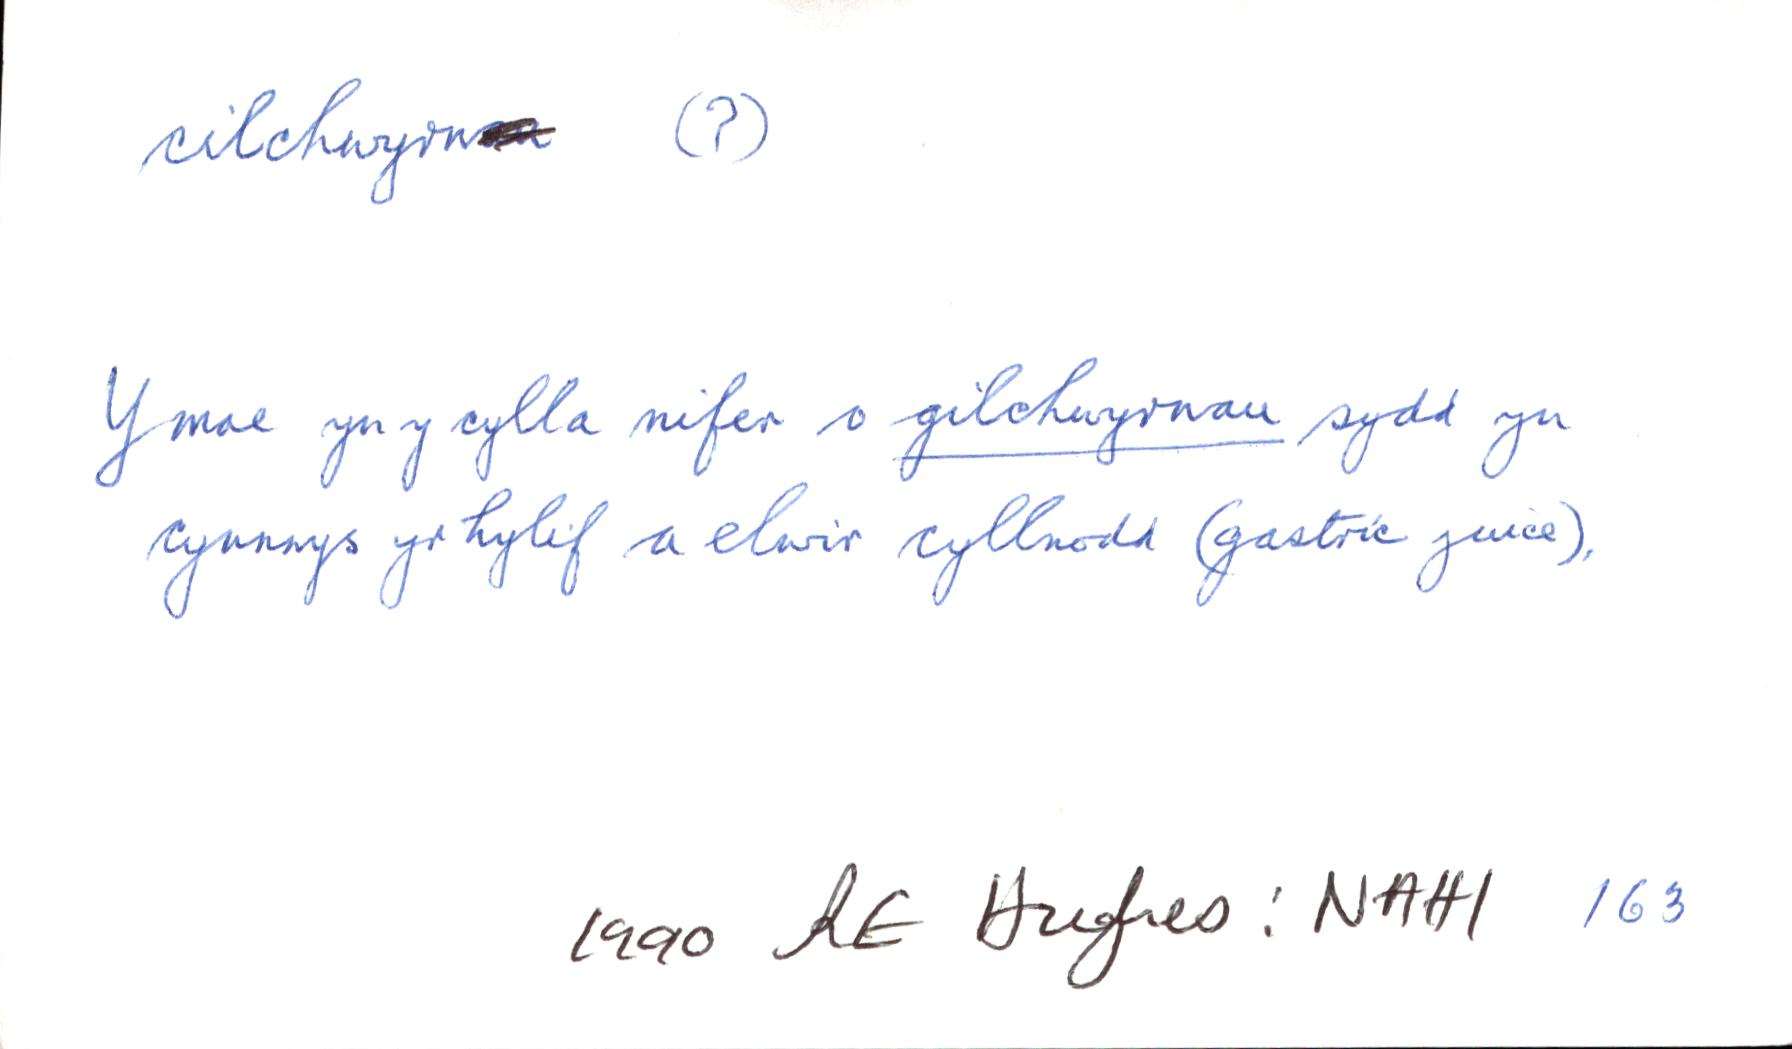 cilchwyrn (?)
Y mae yn y cylla nifer o gilchwyrnau sydd yn
cynnnys yr hylif a elwir cyllnodd (gastric juice),
1990 RE Hughes : NAHH 163